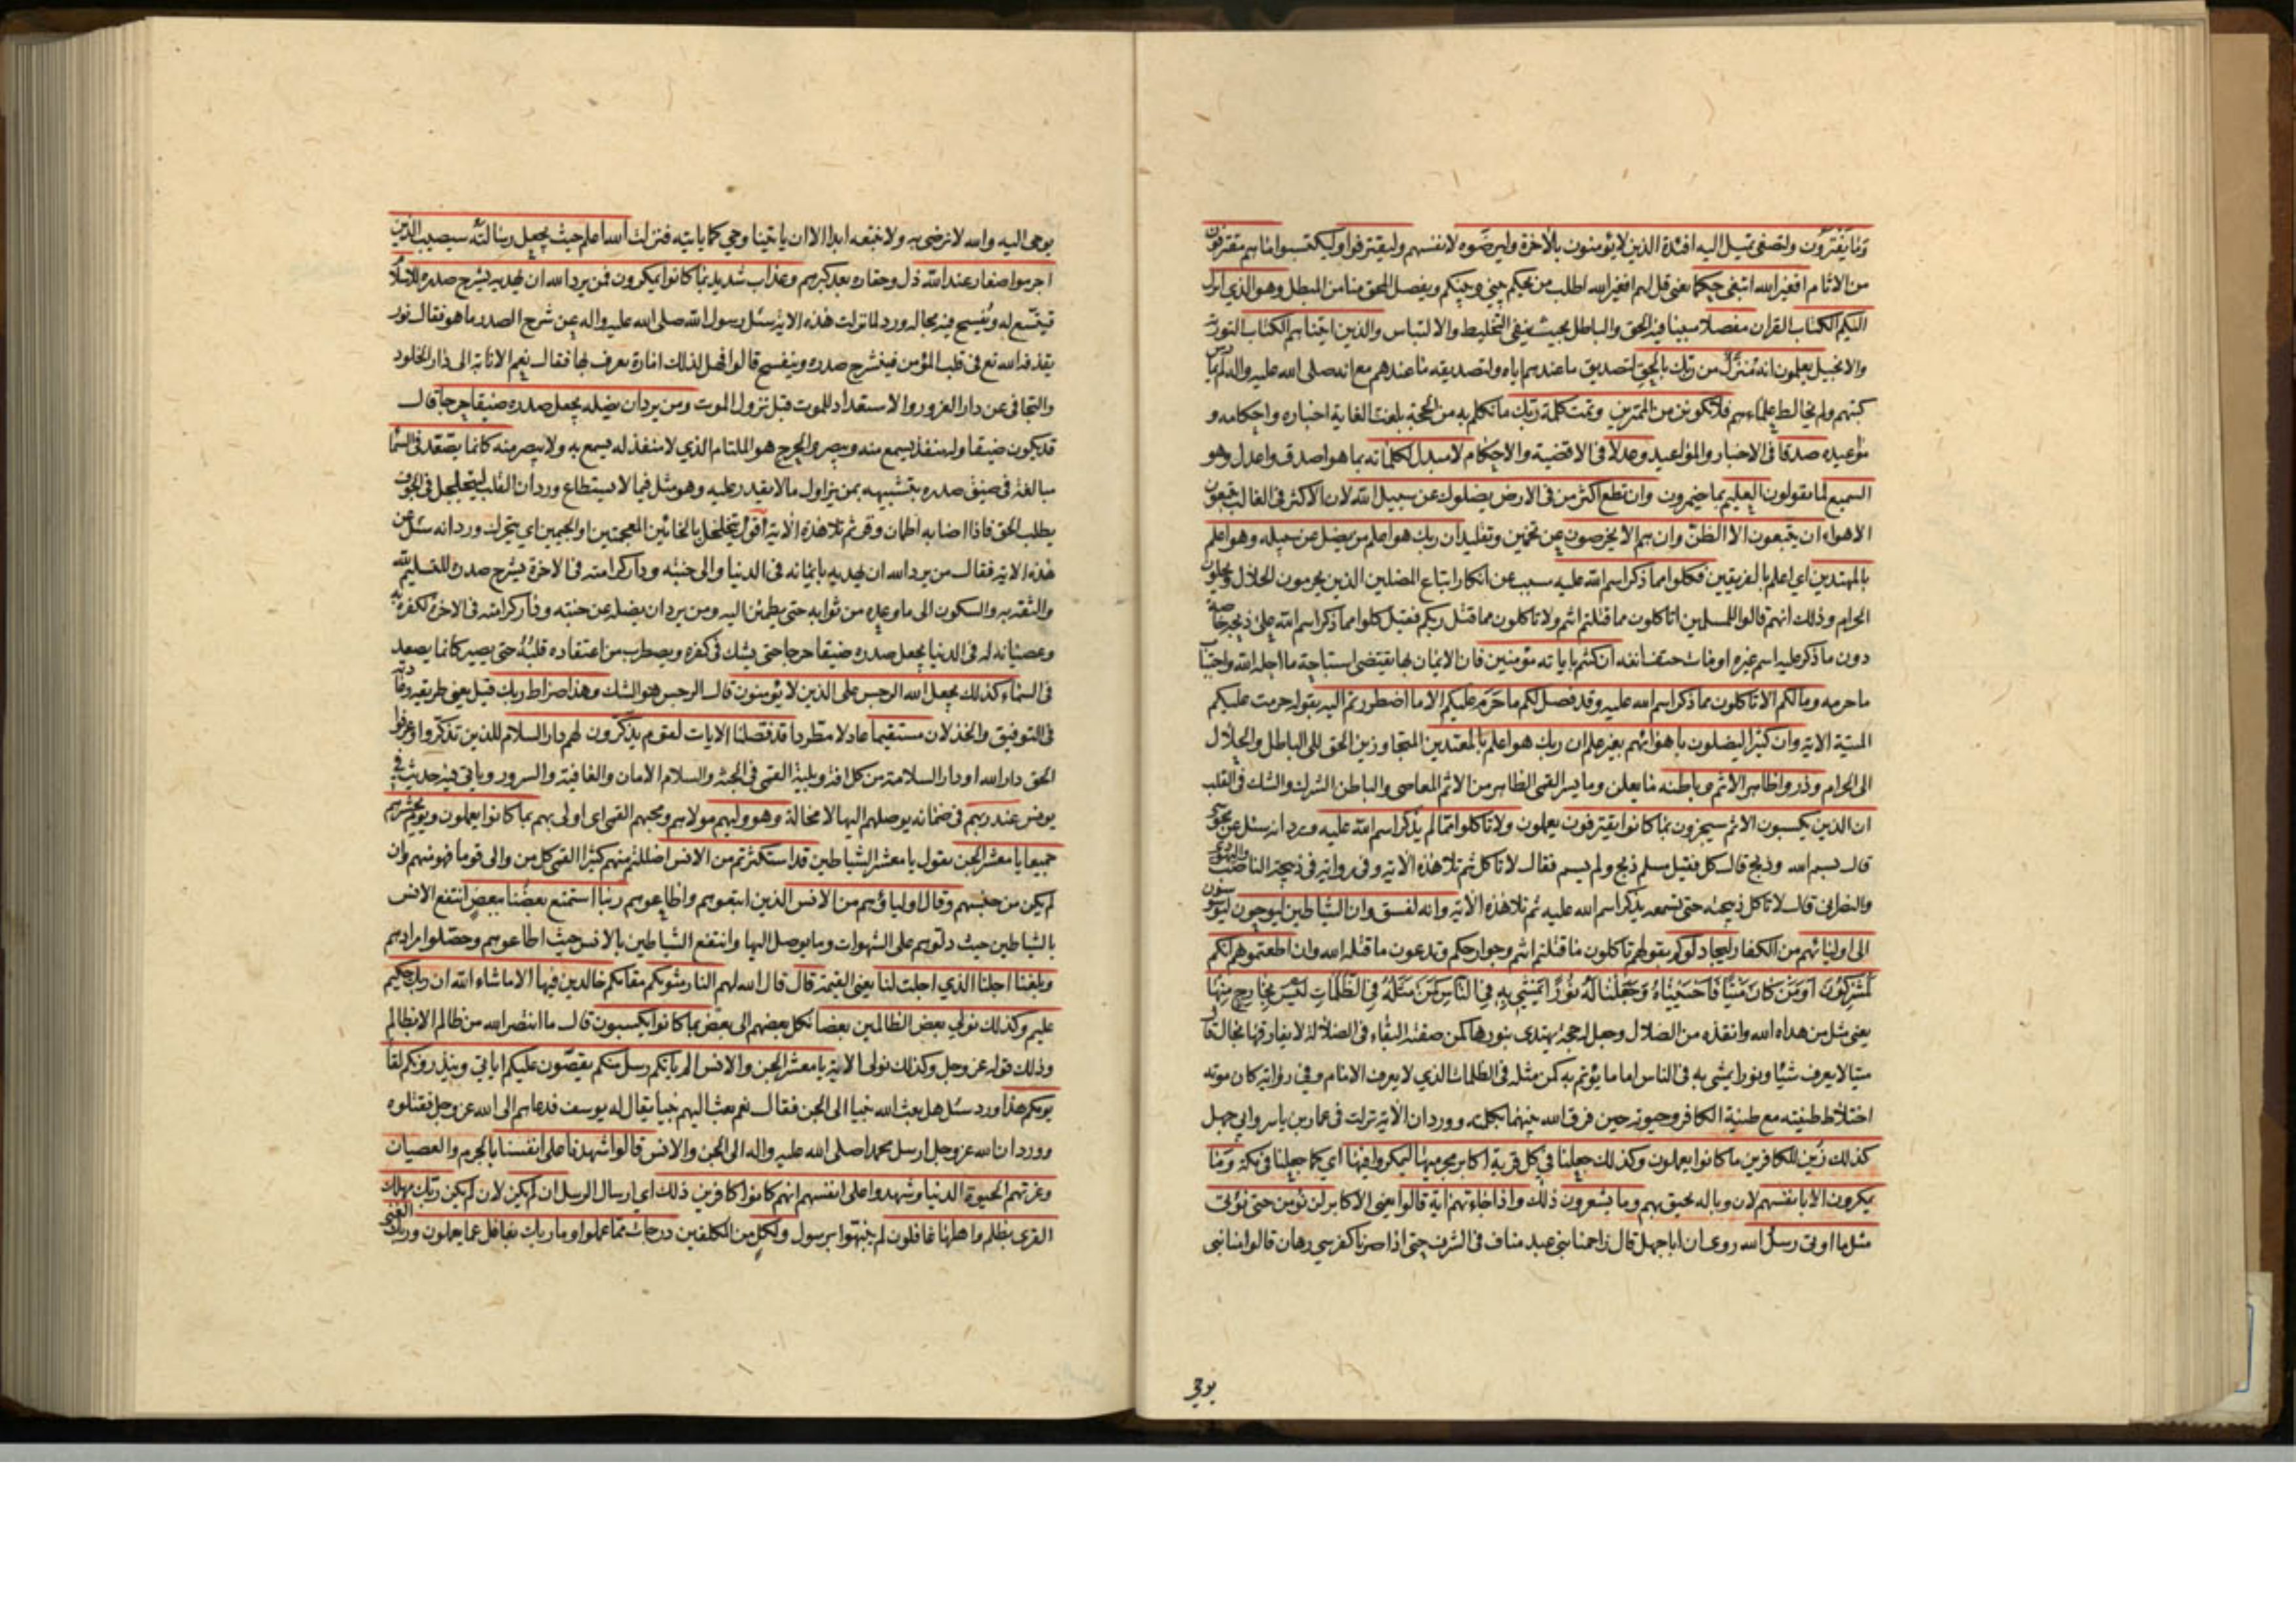 وما يفترون ولتصغى تميل اليه افئدة الذين لا يؤمنون بالاخرة وليرضوه لانفسهم وليقترفوا وليكتسبوا ما هم مقترفون
من الاثام افغير الله ابتغى حكما يعنى قل لهم افغير الله اطلب من يحكم بينى وبينكم ويفصل المحق منا من المبطل وهو الذي انزل
اليكم الكتاب القران مفصلا مبينا فيه الحق والباطل بحيث ينفى التخليط والالتباس والذين اتيناهم الكتاب التورية
والانجيل يعلمون انه منزل من ربك بالحق لتصديق ما عندهم اياه ولتصديقه ما عندهم مع انه صلى الله عليه واله لم يمارس
كتبهم ولم يخالط علماءهم فلا تكونن من الممترين وتمت كلمة ربك ما تكلم به من الحجة بلغت الغاية اخباره واحكامه و
مواعيده صدقا فى الاخبار والمواعيد وعدلا فى الاقضية والاحكام لا مبدل لكلماته بما هو اصدق واعدل وهو
السميع لما يقولون العليم بما يضمرون وان تطع اكثر من فى الارض يضلوك عن سبيل الله لان الاكثر فى الغالب يتبعون
الاهواء ان يتبعون الا الظن وان هم الا يخرصون عن تخمين وتقليد ان ربك هو اعلم من يضل عن سبيله وهو اعلم
بالمهتدين اي اعلم بالفريقين فكلوا مما ذكر اسم الله عليه سبب عن انكار اتباع المضلين الذين يحرمون الحلال ويحلون
الحرام وذلك انهم قالوا للمسلمين اتاكلون مما قتلتم انتم ولا تاكلون مما قتل ربكم فقيل كلوا مما ذكر اسم الله على ذبحه خاصة
دون ما ذكر عليه اسم غيره او مات حتف انفه ان كنتم باياته مؤمنين فان الايمان بها يقتضى استباحة ما احله الله واجتناب
ما حرمه وما لكم الا تاكلون مما ذكر اسم الله عليه وقد فصل لكم ما حرم عليكم الا ما اضطررتم اليه بقوله حرمت عليكم
الميتة الاية وان كثيرا ليضلون باهوائهم بغير علم ان ربك هو اعلم بالمعتدين المتجاوزين الحق الى الباطل والحلال
الى الحرام وذروا ظاهر الاثم وباطنه ما يعلن وما يسر القمى الظاهر من الاثم المعاصى والباطن الشرك والشك فى القلب
ان الذين يكسبون الاثم سيجزون بما كانوا يقترفون يعملون ولا تاكلوا مما لم يذكر اسم الله عليه ورد انه سئل عن مجوسى
قال بسم الله وذبح قال كل فقيل مسلم ذبح ولم يسم فقال لا تاكل ثم تلا هذه الاية وفى رواية فى ذبيحة الناصب واليهودى
والنصرانى قال لا تاكل ذبيحته حتى تسمعه يذكر اسم الله عليه ثم تلا هذه الاية وانه لفسق وان الشياطين ليوحون ليوسوسون
الى اوليائهم من الكفار ليجادلوكم بقولهم تاكلون ما قتلتم انتم وجوارحكم وتدعون ما قتله الله وان اطعتموهم انكم
لمشركون اومن كان ميتا فاحييناه وجعلنا له نورا يمشي به في الناس كمن مثله في الظلمات ليس بخارج منها
يعنى مثل من هداه الله وانقذه من الضلال وجعل له حجة يهتدى بنورها كمن صفته البقاء فى الضلالة لا يفارقها بحال قال
ميتا لا يعرف شيئا ونورا يمشى به فى الناس اماما يؤتم به كمن مثله فى الظلمات الذي لا يعرف الامام وفى رواية كان موته
اختلاط طينته مع طينة الكافر وحيوته حين فرق الله بينهما بكلمته وورد ان الاية نزلت فى عمار بن ياسر وابى جهل
كذلك زين للكافرين ما كانوا يعملون وكذلك جعلنا في كل قرية اكابر مجرميها ليمكروا فيها اي كما جعلنا فى مكة وما
يمكرون الا بانفسهم لان وباله يحيق بهم وما يشعرون ذلك واذا جاءتهم اية قالوا يعنى الاكابر لن نؤمن حتى نؤتى
مثل ما اوتى رسل الله روى ان ابا جهل قال زاحمنا بنى عبد مناف فى الشرف حتى اذا صرنا كفرسي رهان قالوا منا نبى
يوحى
يوحى اليه والله لا نرضى به ولا نتبعه ابدا الا ان ياتينا وحي كما ياتيه فنزلت الله اعلم حيث يجعل رسالته سيصيب الذين
اجرموا صغار عند الله ذل وحقارة بعد كبرهم وعذاب شديد بما كانوا يمكرون فمن يرد الله ان يهديه يشرح صدره للاسلام
فيتسع له ويفسح فيه مجاله ورد لما نزلت هذه الاية سئل رسول الله صلى الله عليه واله عن شرح الصدر ما هو فقال نور
يقذفه الله تع فى قلب المؤمن فينشرح صدره وينفسح قالوا فهل لذلك امارة يعرف بها فقال نعم الانابة الى دار الخلود
والتجافى عن دار الغرور والاستعداد للموت قبل نزول الموت ومن يرد ان يضله يجعل صدره ضيقا حرجا قال
قد يكون ضيقا وله منفذ يسمع منه ويبصر والحرج هو الملتام الذي لا منفذ له يسمع به ولا يبصر منه كانما يصعد فى السماء
مبالغة فى ضيق صدره بتشبيهه بمن يزاول ما لا يقدر عليه وهو مثل فيما لا يستطاع وورد ان القلب ليتجلجل فى الجوف
يطلب الحق فاذا اصابه اطمان وقر ثم تلا هذه الاية اقول يتخلخل بالخائين المعجمتين او الجيمين اي يتحرك وورد انه سئل عن
هذه الاية فقال من يرد الله ان يهديه بايمانه فى الدنيا والى جنته ودار كرامته فى الاخرة يشرح صدره للتسليم لله
والثقة به والسكون الى ما وعده من ثوابه حتى يطمئن اليه ومن يرد ان يضله عن جنته ودار كرامته فى الاخرة لكفره به
وعصيانه له فى الدنيا يجعل صدره ضيقا حرجا حتى يشك فى كفره ويضطرب من اعتقاده قلبه حتى يصير كانما يصعد
فى السماء كذلك يجعل الله الرجس على الذين لا يؤمنون قال الرجس هو الشك وهذا صراط ربك قيل يعنى طريقه وعادته
فى التوفيق والخذلان مستقيما عادلا مطردا قد فصلنا الايات لقوم يذكرون لهم دار السلام للذين تذكروا وعرفوا
الحق دار الله او دار السلامة من كل افة وبلية القمى فى الجنة والسلام الامان والعافية والسرور وياتى فيه حديث فى
يونس عند ربهم فى ضمانه يوصلهم اليها لا محالة وهو وليهم مولاهم ومحبهم القمى اى اولى بهم بما كانوا يعملون ويوم يحشرهم
جميعا يا معشر الجن يقول يا معشر الشياطين قد استكثرتم من الانس اضللتم منهم كثيرا القمى كل من والى قوما فهو منهم وان
لم يكن من جنسهم وقال اولياؤهم من الانس الذين اتبعوهم واطاعوهم ربنا استمتع بعضنا ببعض انتفع الانس
بالشياطين حيث دلوهم على الشهوات وما يوصل اليها وانتفع الشياطين بالانس حيث اطاعوهم وحصلوا مرادهم
وبلغنا اجلنا الذي اجلت لنا يعنى القيمة قال قال الله لهم النار مثويكم مقامكم خالدين فيها الا ما شاء الله ان ربك حكيم
عليم وكذلك نولي بعض الظالمين بعضا نكل بعضهم الى بعض بما كانوا يكسبون قال ما انتصر الله من ظالم الا بظالم
وذلك قوله عز وجل وكذلك نولى الاية يا معشر الجن والانس الم ياتكم رسل منكم يقصون عليكم اياتي وينذرونكم لقاء
يومكم هذا ورد سئل هل بعث الله نبيا الى الجن فقال نعم بعث اليهم نبيا يقال له يوسف فدعاهم الى الله عز وجل فقتلوه
وورد ان الله عز وجل ارسل محمدا صلى الله عليه واله الى الجن والانس قالوا شهدنا على انفسنا بالجرم والعصيان
وغرتهم الحيوة الدنيا وشهدوا على انفسهم انهم كانوا كافرين ذلك اي ارسال الرسل ان لم يكن لان لم يكن ربك مهلك
القرى بظلم واهلها غافلون لم ينبهوا برسول ولكل من المكلفين درجات مما عملوا وما ربك بغافل عما يعملون وربك الغنى